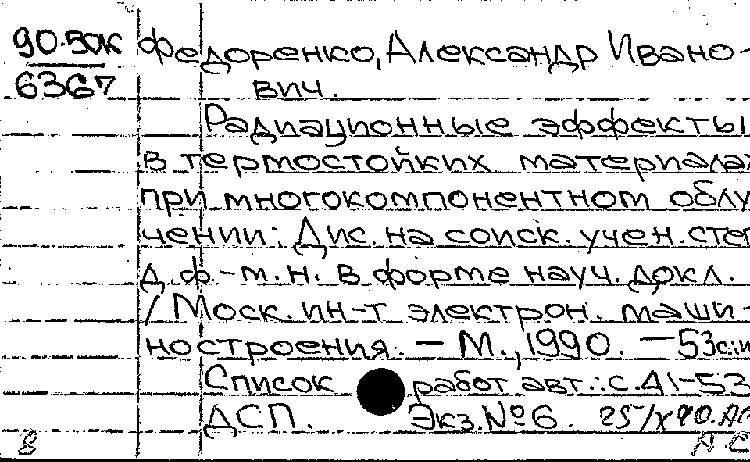 90.50к Федоренко, Александр Ивано-
6367 вич.
Радиационные эффекты
в термостойких материалах
при многокомпонентном облу
чении: Дис. на соиск. учен. степ
д. ф.-м. н. в форме науч. докл.
/ Моск. ин-т электрон. маши-
ностроения. — М., 1990. — 53с.:и
Список работ авт.: с.41-53
ДСП. Экз. №6.
8